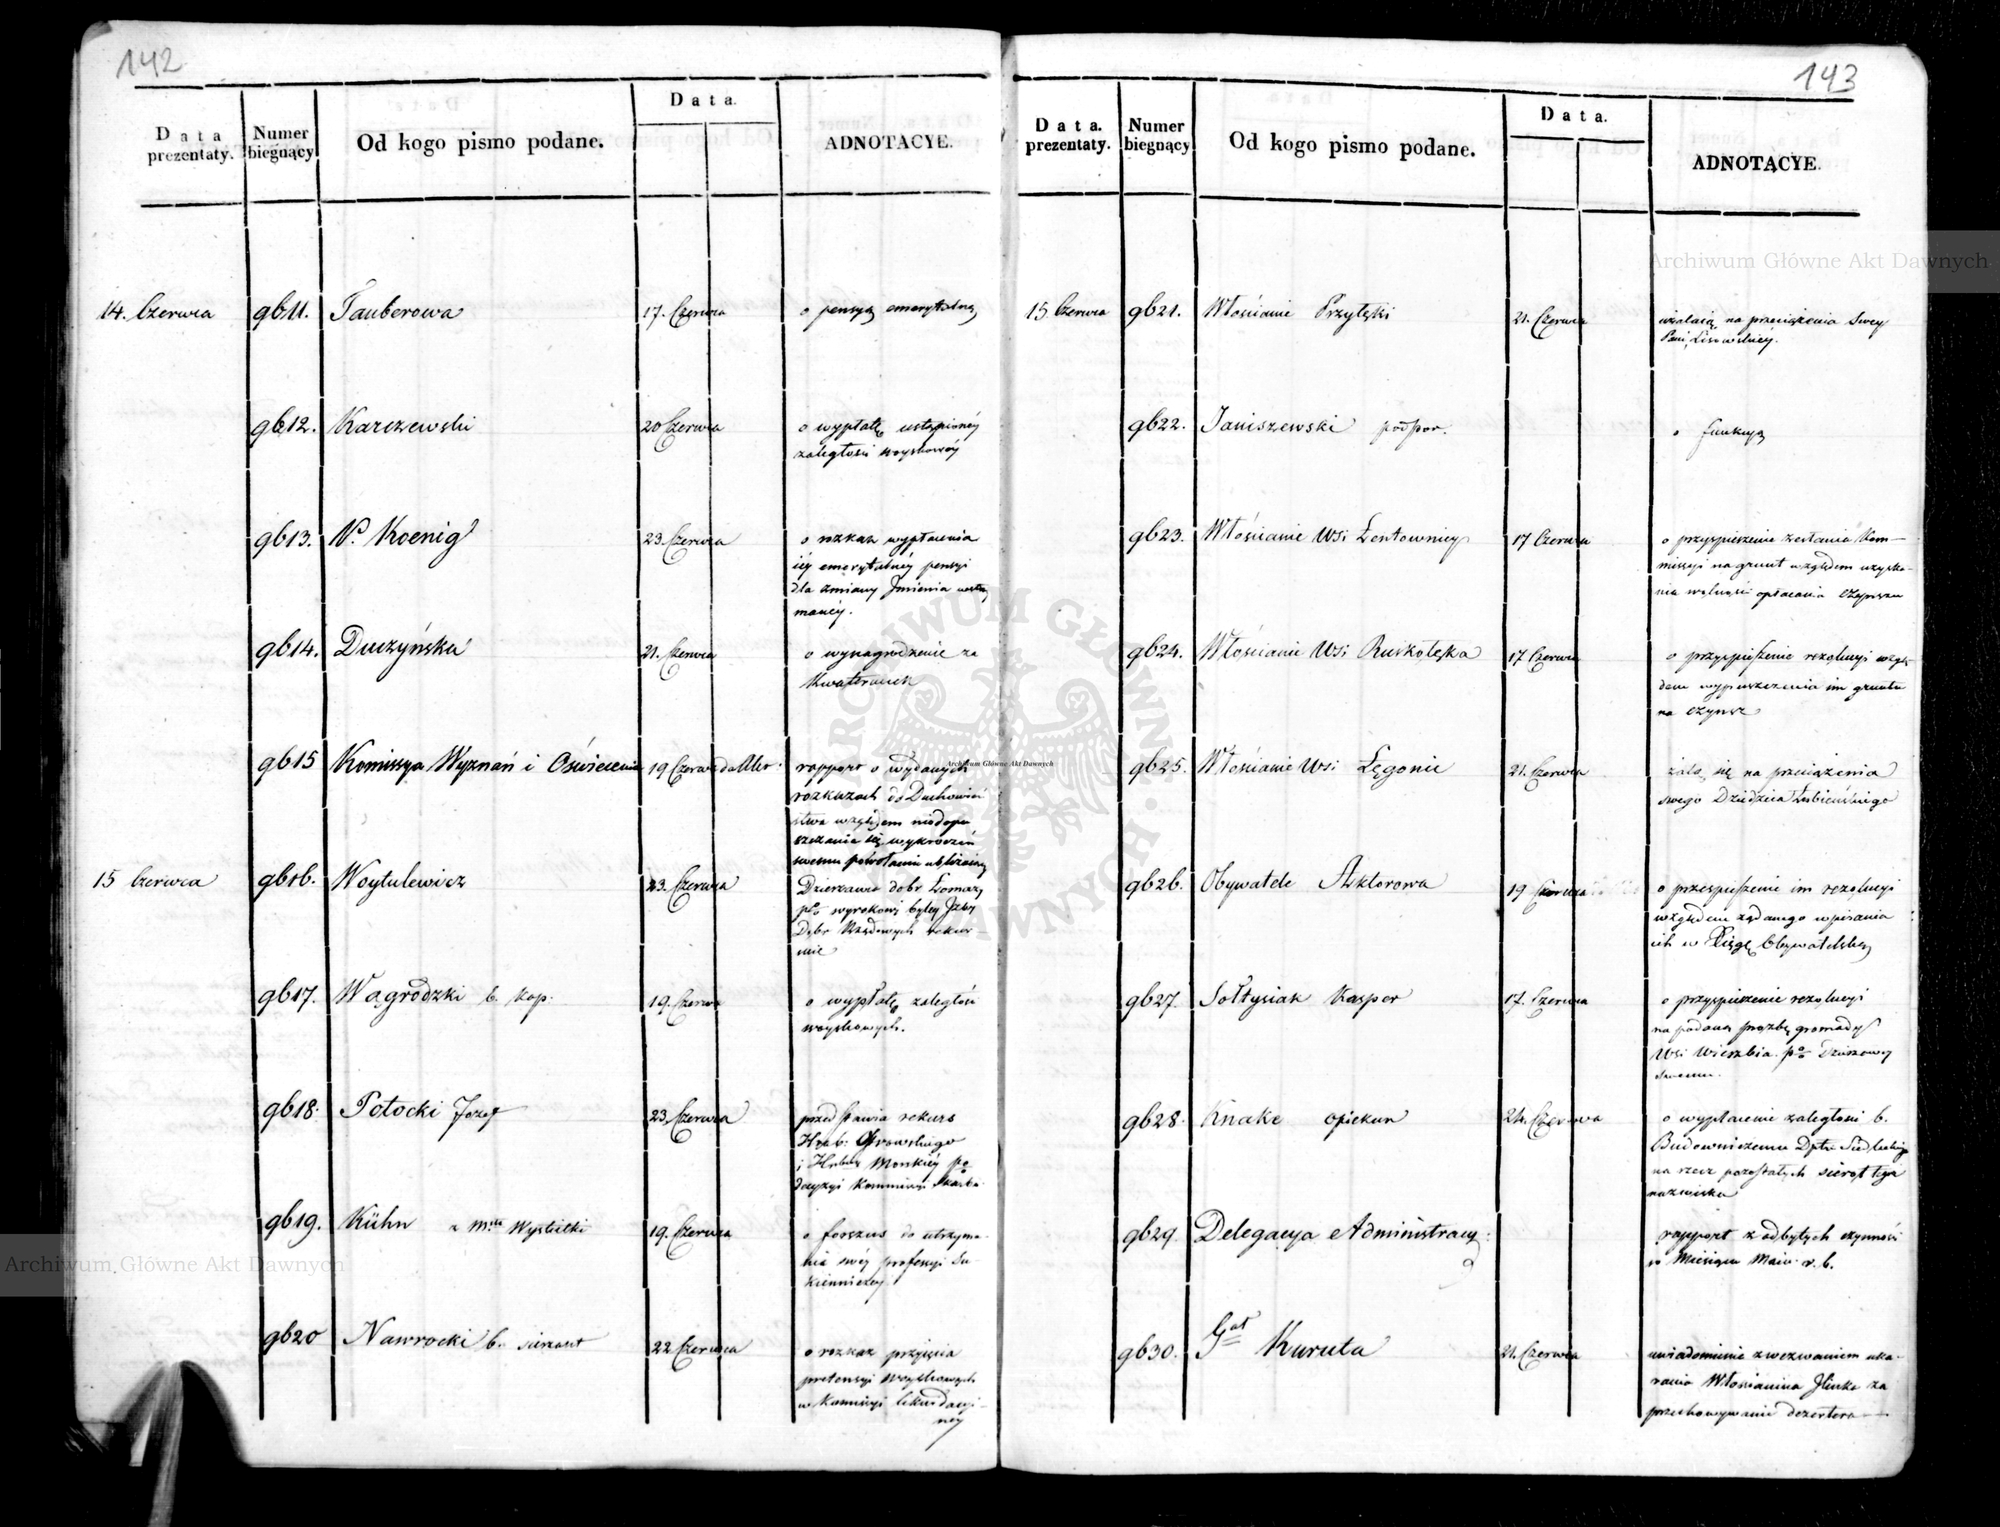 142
Data prezentaty. Numer biegnący Od kogo pismo podane. Data. ADNOTACYE.
14. Czerwca 9611. Tauberowa 17. Czerwca o pensyą emerytalną
9612. Karczewski 20 Czerwca o wypłatę ustąpionéy
zaległości woyskowéy
9613. Koenig 23. Czerwca o rozkaz wypłacenia
iéy emerytalnéy pensyi
dla zmiany Jmienia
9614. Duczyńska 21. Czerwca o wynagrodzenie za
Kwaterunek
9615 Komissya Wyznań i Oświecenia 19 Czerwca rapport o wydanych
rozkazach do Duchowień
stwa względem niedopu
szczania się wykroczeń
swemu powołaniu
15 Czerwca 9616. Woytulewicz 23. Czerwca Dzierżawca dobr Łomazy
wyrokowi byłey Izby
Dobr Rządowych rekur-
9617. Wagrodzki b. kap. 19. Czerwca o wypłatę zaległości
woyskowych.
9618. Potocki Jozef 23. Czerwca przedstawia rekurs
Hrab:
i
decyzyi Kommissyi Skarbu
9619. Kühn z Mta Wystitki 19. Czerwca o forszus do utrzyma-
nia swéj professyi Su-
kienniczey
9620 Nawrocki b. sierzant 22 Czerwca o rozkaz przyięcia
pretensyi woyskowych
w Komissyi likwidacyi-
ney
143
Data. prezentaty. Numer biegnący Od kogo pismo podane. Data. ADNOTACYE.
15 Czerwca 9621. Włościanie Przytęski 21. Czerwca użalaią na przeciążenia Swey
Pani Lisowskiéy.
9622. Janiszewski podpor. o funkcyą
9623. Włościanie Wsi Łentownicy 17 Czerwca o przyspieszenie zesłania Kom-
missyi na grunt względem uzyska-
nia wolności opłacania czynszu
9624. Włościanie Wsi Ruskołęka 17 Czerwca o przyspieszenie rezolucyi wzglę
dem wypuszczenia im gruntu
na czynsz
9625. Włościanie Wsi Łęgonice 21. Czerwca żalą się na przeciążenia
swego Dziedzica Łubieńskiego
9626. Obywatele Aktorowa 19 Czerwca o przespieszenie im rezolucyi
względem żądanego wpisania
ich w Xięgę Obywatelską
9627 Sołtysiak Kasper 17. Czerwca o przyspieszenie rezolucyi
na podaną prozbę gromady
Wsi Wierzbia
9628. Knake opiekun 24. Czerwca o wypłacenie zaległosci b.
Budowniczemu Dptu Siedleckiego
na rzecz pozostałych sierot tego
nazwiska
9629. Delegacya Administracy: rapport z odbytych czynności
w Miesiącu Maiu r. b.
9630. Gał Kuruta 21. Czerwca uwiadomienie z wezwaniem uka-
rania Włościanina Jlinka za
przechowywanie dezertera
Archiwum Główne Akt Dawnych
Archiwum Główne Akt Dawnych
Archiwum Główne Akt Dawnych
ARCHIWUM GŁÓWNE AKT DAWNYCH